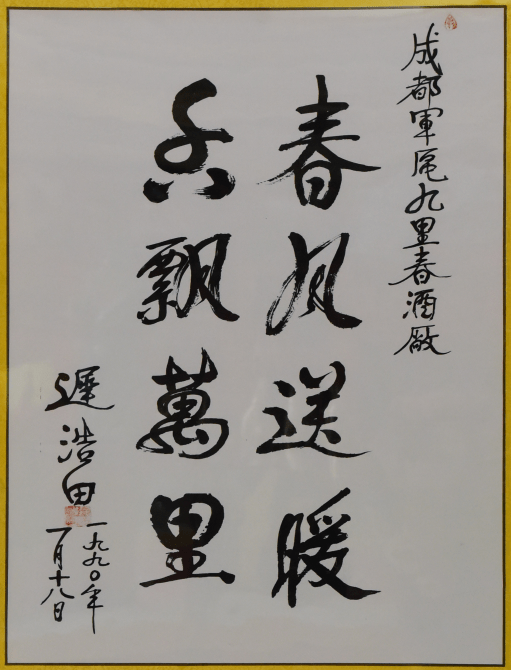 成都軍區九里春酒廠
春风送暖
香飘萬里
遲浩田
一九九〇年
一月十八日